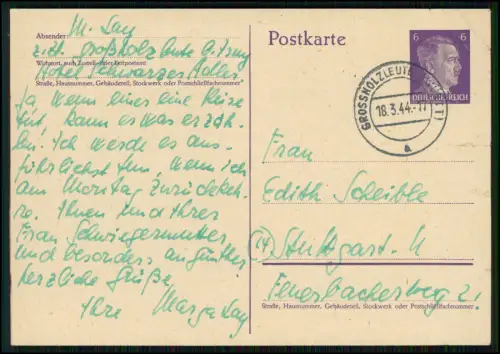 M. Lay
Absender:
z. Zt. Großholzleute
Wohnort, auch Zustell- oder Leitpostamt
Hotel Schwarzer Adler
Straße, Hausnummer, Gebäudeteil, Stockwerk oder Postschließfachnummer
Ja, wenn einer eine Reise
tut, kann er was erzäh-
len. Ich werde es aus-
führlichst tun, wenn ich
am Montag zurückkeh-
re. Ihnen und Ihrer
Frau Schwiegermutter
und besonders
herzliche Grüße
Ihre Marga Lay
Postkarte
6 6
DEUTSCHES REICH
GROSSHOLZLEUTE
18.3.44.-17
a
Frau
Edith Scheible
(14) Stuttgart-N
Feuerbacherweg 21
Straße, Hausnummer, Gebäudeteil, Stockwerk oder Postschließfachnummer